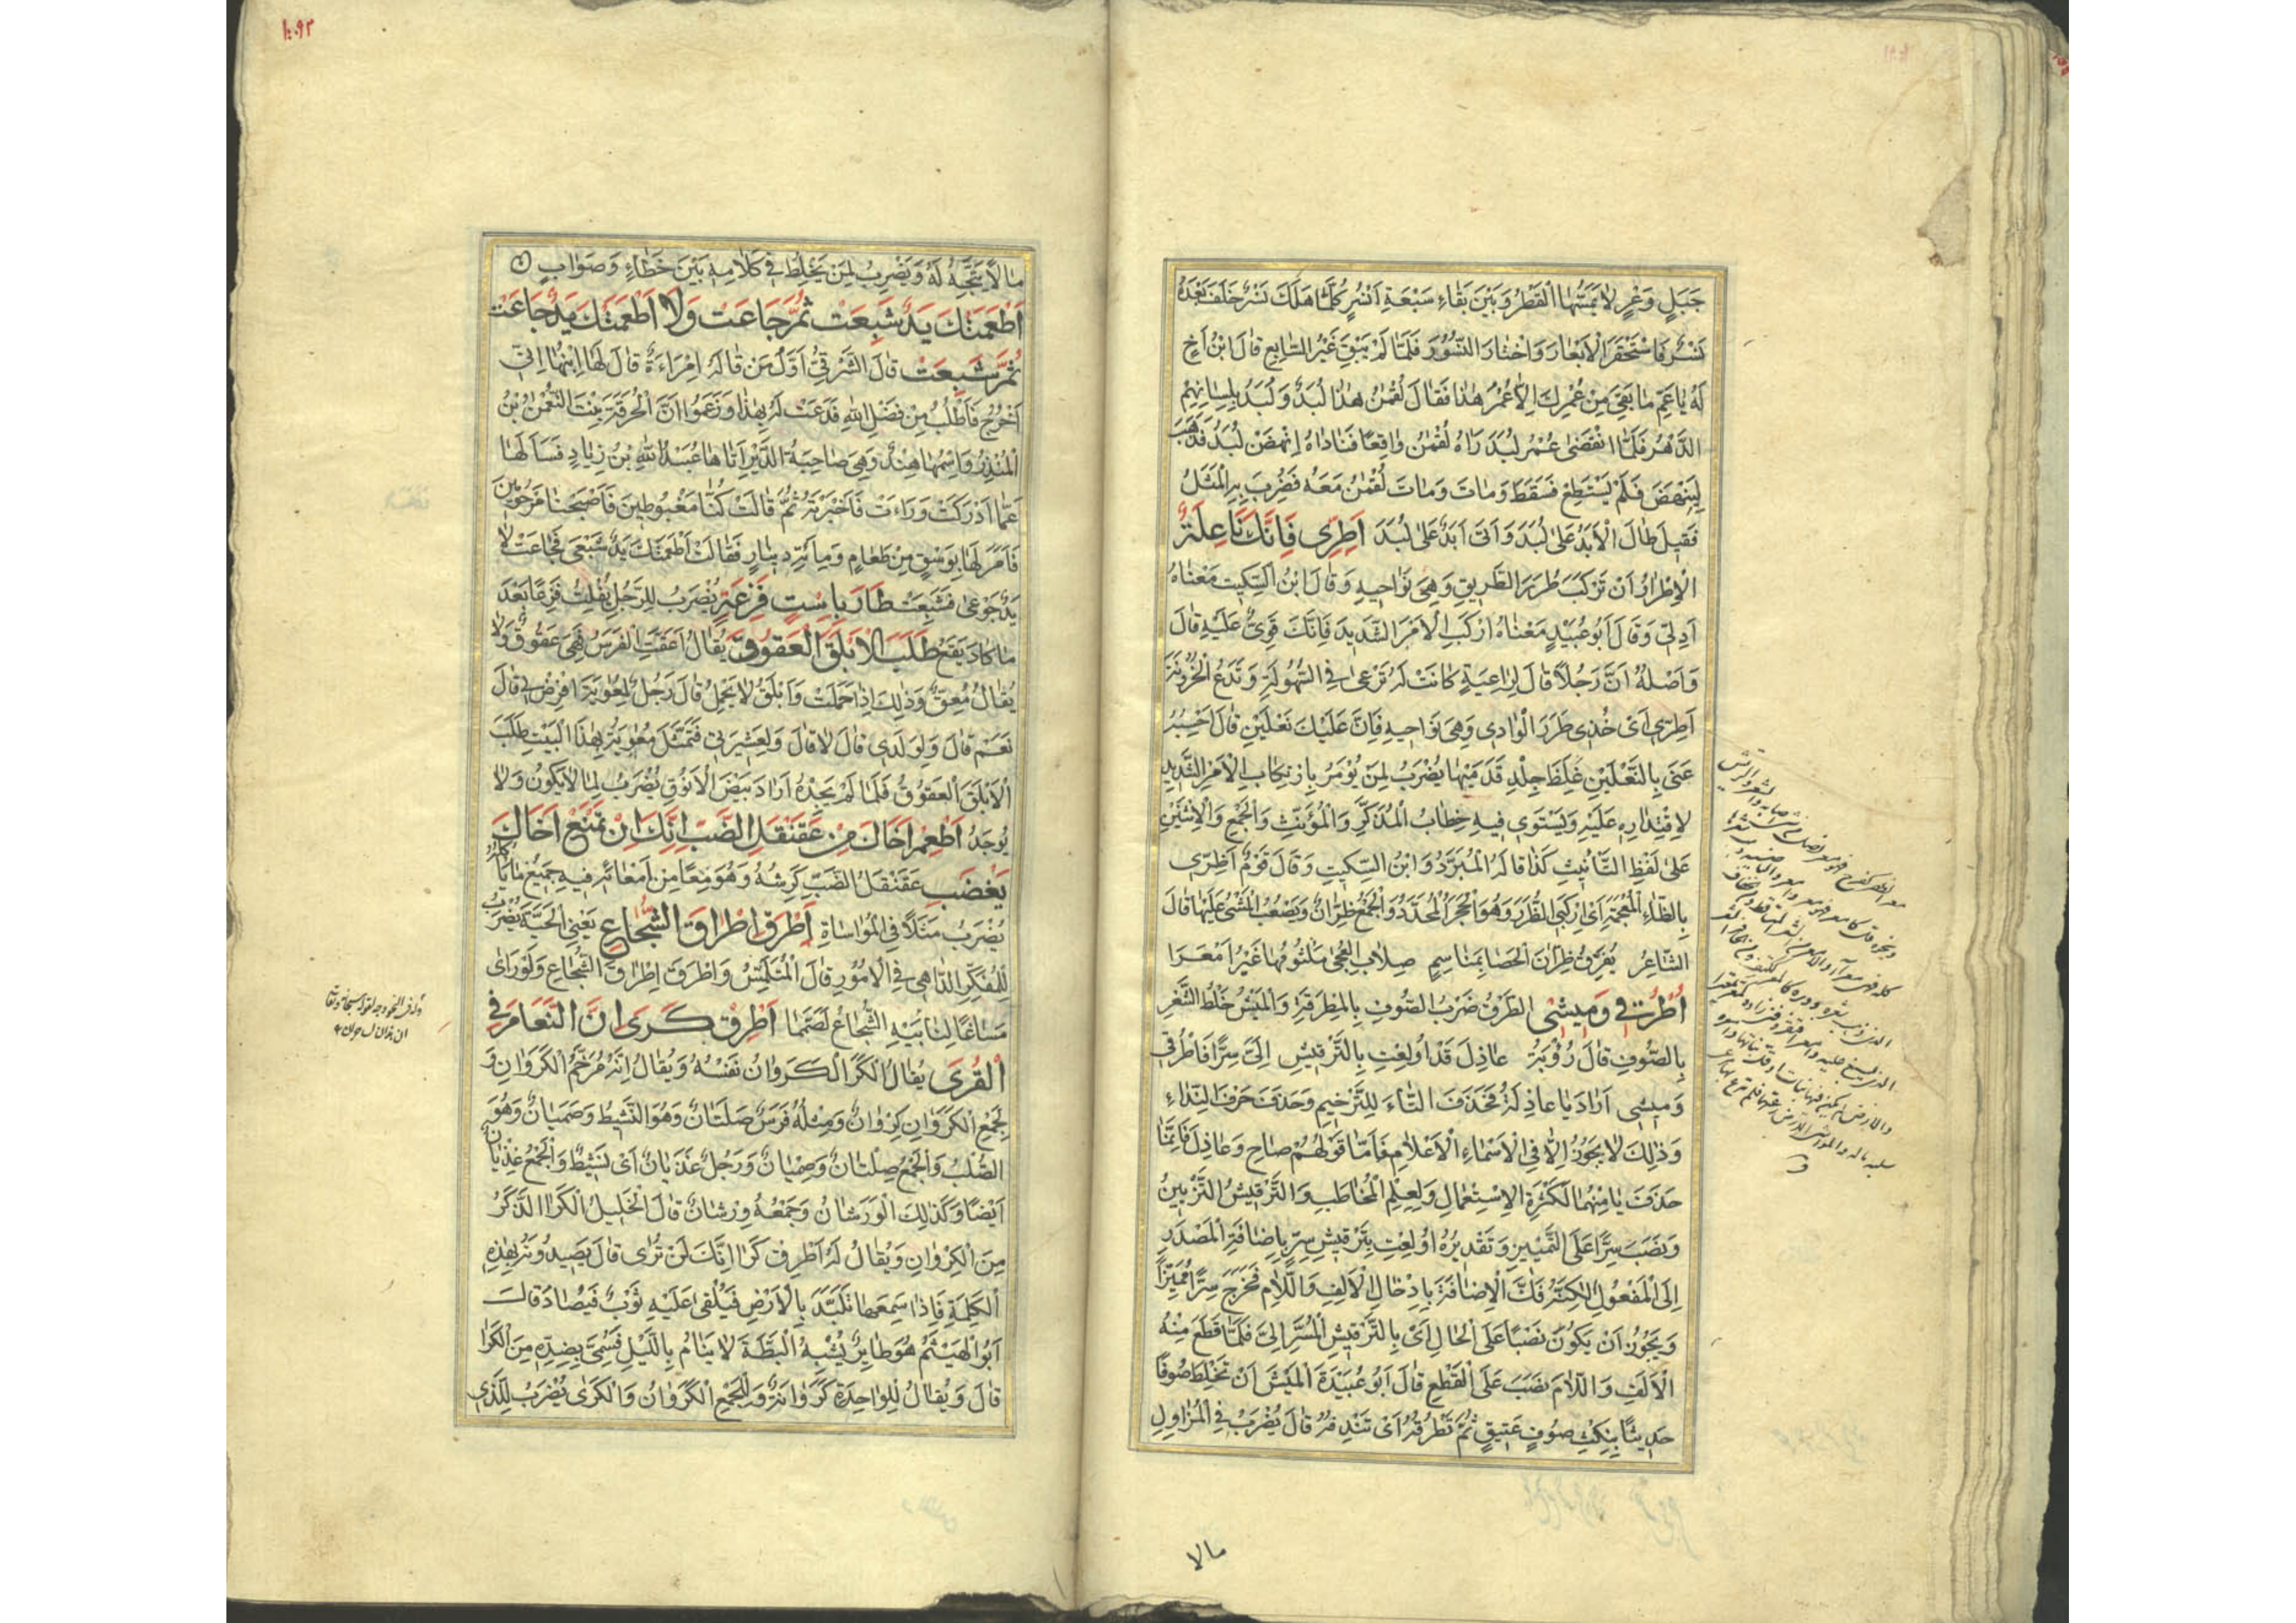 جَبَلٍ وَعْرٍ لَا يَمَسُّهَا الْقَطْرُ وَبَيْنَ بَقَاءِ سَبْعَةِ اَنْسُرٍ كُلَّمَا هَلَكَ نَسْرٌ خَلَفَ بَعْدَهُ
نَسْرٌ فَاسْتَحْقَرَ الْاَبْعَارَ وَاخْتَارَ النُّسُورَ فَلَمَّا لَمْ يَبْقَ غَيْرُ السَّابِعِ قَالَ ابْنُ اَخٍ
لَهُ يَا عَمِّ مَا بَقِيَ مِنْ عُمْرِكَ اِلَّا عُمْرُ هٰذَا فَقَالَ لُقْمٰنُ هٰذَا لُبَدُ وَلُبَدُ بِلِسَانِهِمُ
الدَّهْرُ فَلَمَّا انْقَضٰى عُمْرُ لُبَدَ رَاٰهُ لُقْمٰنُ وَاقِعًا فَنَادَاهُ اِنْهَضْ لُبَدُ فَذَهَبَ
لِيَنْهَضَ فَلَمْ يَسْتَطِعْ فَسَقَطَ وَمَاتَ وَمَاتَ لُقْمٰنُ مَعَهُ فَضُرِبَ بِهِ الْمَثَلُ
فَقِيلَ طَالَ الْاَبَدُ عَلٰى لُبَدَ وَاَتٰى اَبَدٌ عَلٰى لُبَدَ اَطِرِّى فَاِنَّكِ نَاعِلَةٌ
الْاِطْرَارُ اَنْ تَرْكَبَ طُرَرَ الطَّرِيقِ وَهِىَ نَوَاحِيهِ وَقَالَ ابْنُ السِّكِّيتِ مَعْنَاهُ
اَدِلِّى وَقَالَ اَبُو عُبَيْدٍ مَعْنَاهُ ارْكَبِ الْاَمْرَ الشَّدِيدَ فَاِنَّكَ قَوِىٌّ عَلَيْهِ قَالَ
وَاَصْلُهُ اَنَّ رَجُلًا قَالَ لِرَاعِيَةٍ كَانَتْ لَهُ تَرْعٰى فِى السُّهُولَةِ وَتَدَعُ الْحُزُونَةَ
اَطِرِّى اَىْ خُذِى طُرَرَ الْوَادِى وَهِىَ نَوَاحِيهِ فَاِنَّ عَلَيْكِ نَعْلَيْنِ قَالَ اَحْسِبُهُ
عَنٰى بِالنَّعْلَيْنِ غِلَظَ جِلْدِ قَدَمَيْهَا يُضْرَبُ لِمَنْ يُؤْمَرُ بِارْتِكَابِ الْاَمْرِ الشَّدِيدِ
لِاقْتِدَارِهِ عَلَيْهِ وَيَسْتَوِى فِيهِ خِطَابُ الْمُذَكَّرِ وَالْمُؤَنَّثِ وَالْجَمْعِ وَالْاِثْنَيْنِ
عَلٰى لَفْظِ التَّانِيثِ كَذَا قَالَهُ الْمُبَرَّدُ وَابْنُ السِّكِّيتِ وَقَالَ قَوْمٌ اَظِرِّى
بِالظَّاءِ الْمُعْجَمَةِ اَىْ اِرْكَبِى الظُّرَرَ وَهُوَ الْحَجَرُ الْمُحَدَّدُ وَالْجَمْعُ ظِرَّانٌ وَيَصْعُبُ الْمَشْىُ عَلَيْهَا قَالَ
الشَّاعِرُ يُفَرِّقُ ظِرَّانَ الْحَصَا بِمَنَاسِمٍ صِلَابِ الْعُجٰى مَلْثُومُهَا غَيْرُ اَمْعَرَا
اُطْرُقِى وَمِيشِى الطَّرْقُ ضَرْبُ الصُّوفِ بِالْمِطْرَقَةِ وَالْمَيْشُ خَلْطُ الشَّعْرِ
بِالصُّوفِ قَالَ رُؤْبَةُ عَاذِلَ قَدْ اُولِعْتِ بِالتَّرْقِيشِ اِلَىَّ سِرًّا فَاطْرُقِى
وَمِيشِى اَرَادَ يَا عَاذِلَةُ فَحَذَفَ التَّاءَ لِلتَّرْخِيمِ وَحَذَفَ حَرْفَ النِّدَاءِ
وَذٰلِكَ لَا يَجُوزُ اِلَّا فِى الْاَسْمَاءِ الْاَعْلَامِ فَاَمَّا قَوْلُهُمْ صَاحِ وَعَاذِلَ فَاِنَّمَا
حَذَفَ يَا مِنْهُمَا لِكَثْرَةِ الْاِسْتِعْمَالِ وَلِعِلْمِ الْمُخَاطَبِ وَالتَّرْقِيشُ التَّزْيِينُ
وَنَصَبَ سِرًّا عَلَى التَّمْيِيزِ وَتَقْدِيرُهُ اُولِعْتِ بِتَرْقِيشِ سِرٍّ بِاِضَافَةِ الْمَصْدَرِ
اِلَى الْمَفْعُولِ لٰكِنَّهُ فَكَّ الْاِضَافَةَ بِاِدْخَالِ الْاَلِفِ وَاللَّامِ فَخَرَجَ سِرًّا مُمَيِّزًا
وَيَجُوزُ اَنْ يَكُونَ نَصْبًا عَلَى الْحَالِ اَىْ بِالتَّرْقِيشِ الْمُسَرِّ اِلَىَّ فَلَمَّا قَطَعَ مِنْهُ
الْاَلِفَ وَاللَّامَ نَصَبَ عَلَى الْقَطْعِ قَالَ اَبُو عُبَيْدَةَ الْمَيْشُ اَنْ تَخْلِطَ صُوفًا
حَدِيثًا بِنِكْثِ صُوفٍ عَتِيقٍ ثُمَّ تَطْرُقُهُ اَىْ تَنْدِفُهُ قَالَ يُضْرَبُ فِى الْمُزَاوِلِ
مالا
مَا لَا يَتَّجِهُ لَهُ وَيُضْرَبُ لِمَنْ يَخْلِطُ فِى كَلَامِهِ بَيْنَ خَطَاءٍ وَصَوَابٍ
اَطْعَمَتْكَ يَدٌ شَبِعَتْ ثُمَّ جَاعَتْ وَلَا اَطْعَمَتْكَ يَدٌ جَاعَتْ
ثُمَّ شَبِعَتْ قَالَ الشَّرْقِىُّ اَوَّلُ مَنْ قَالَهُ اِمْرَاءَةٌ قَالَ لَهَا ابْنُهَا اِنِّى
اَخْرُجُ فَاَطْلُبُ مِنْ فَضْلِ اللهِ فَدَعَتْ لَهُ بِهٰذَا وَزَعَمُوا اَنَّ الْحُرَقَةَ بِنْتَ النُّعْمٰنِ بْنِ
الْمُنْذِرِ وَاسْمُهَا هِنْدٌ وَهِىَ صَاحِبَةُ الدَّيْرِ اَتَاهَا عُبَيْدُ اللهِ بْنُ زِيَادٍ فَسَاَلَهَا
عَمَّا اَدْرَكَتْ وَرَاءَتْ فَاَخْبَرَتْهُ ثُمَّ قَالَتْ كُنَّا مَغْبُوطِينَ فَاَصْبَحْنَا مَرْحُومِينَ
فَاَمَرَ لَهَا بِوَسْقٍ مِنْ طَعَامٍ وَمِائَةِ دِينَارٍ فَقَالَتْ اَطْعَمَتْكَ يَدٌ شَبْعٰى فَجَاعَتْ لَا
يَدٌ جَوْعٰى فَشَبِعَتْ طَارَ بِاسْتِ فَزِعَةٍ يُضْرَبُ لِلرَّجُلِ يُفْلِتُ فَزِعًا بَعْدَ
مَا كَادَ يَقَعُ طَلَبَ الْاَبْلَقَ الْعَقُوقَ يُقَالُ اَعَقَّتِ الْفَرَسُ فَهِىَ عَقُوقٌ وَلَا
يُقَالُ مُعِقٌّ وَذٰلِكَ اِذَا حَمَلَتْ وَاَبْلَقُ لَا يَحْمِلُ قَالَ رَجُلٌ لِمُعٰوِيَةَ افْرِضْ لِى قَالَ
نَعَمْ قَالَ وَلِوَلَدِى قَالَ لَا قَالَ وَلِعَشِيرَتِى فَتَمَثَّلَ مُعٰوِيَةُ بِهٰذَا الْبَيْتِ طَلَبَ
الْاَبْلَقَ الْعَقُوقَ فَلَمَّا لَمْ يَجِدْهُ اَرَادَ بَيْضَ الْاَنُوقِ يُضْرَبُ لِمَا لَا يَكُونُ وَلَا
يُوجَدُ اَطْعِمْ اَخَاكَ مِنْ عَقَنْقَلِ الضَّبِّ اِنَّكَ اِنْ تَمْنَعْ اَخَاكَ
يَغْضَبِ عَقَنْقَلُ الضَّبِّ كَرِشُهُ وَهُوَ مِعًا مِنْ اَمْعَائِهِ فِيهِ جَمِيعُ مَا يَاْكُلُهُ
يُضْرَبُ مَثَلًا فِى الْمُوَاسَاةِ اَطْرَقَ اِطْرَاقَ الشُّجَاعِ يَعْنِى الْحَيَّةَ يُضْرَبُ
لِلْمُفَكِّرِ الدَّاهِى فِى الْاُمُورِ قَالَ الْمُتَلَمِّسُ وَاَطْرَقَ اِطْرَاقَ الشُّجَاعِ وَلَوْ رَاٰى
مَسَاغًا لِنَابَيْهِ الشُّجَاعُ لَصَمَّمَا اَطْرِقْ كَرٰى اِنَّ النَّعَامَ فِى
الْقُرٰى يُقَالُ الْكَرَا الْكَرَوَانُ نَفْسُهُ وَيُقَالُ اِنَّهُ مُرَخَّمُ الْكَرَوَانِ وَ
لِجَمْعِ الْكَرَوَانِ كِرْوَانٌ وَمِثْلُهُ فَرَسٌ صَلَتَانٌ وَهُوَ النَّشِيطُ وَصَمَيَانٌ وَهُوَ
الصُّلْبُ وَالْجَمْعُ صِلْتَانٌ وَصِمْيَانٌ وَرَجُلٌ غَذَيَانٌ اَىْ نَشِيطٌ وَالْجَمْعُ غِذْيَانٌ
اَيْضًا وَكَذٰلِكَ الْوَرَشَانُ وَجَمْعُهُ وِرْشَانٌ قَالَ الْخَلِيلُ الْكَرَا الذَّكَرُ
مِنَ الْكِرْوَانِ وَيُقَالُ لَهُ اَطْرِقْ كَرَا اِنَّكَ لَنْ تُرٰى قَالَ يَصِيدُونَهُ بِهٰذِهِ
الْكَلِمَةِ فَاِذَا سَمِعَهَا تَلَبَّدَ بِالْاَرْضِ فَيُلْقٰى عَلَيْهِ ثَوْبٌ فَيُصَادُ قَالَ
اَبُو الْهَيْثَمِ هُوَ طَائِرٌ يُشْبِهُ الْبَطَّةَ لَا يَنَامُ بِاللَّيْلِ فَسُمِّىَ بِضِدِّهِ مِنَ الْكَرَا
قَالَ وَيُقَالُ لِلْوَاحِدَةِ كَرَوَانَةٌ وَلِلْجَمْعِ الْكَرَوَانُ وَالْكَرٰى يُضْرَبُ لِلَّذِى